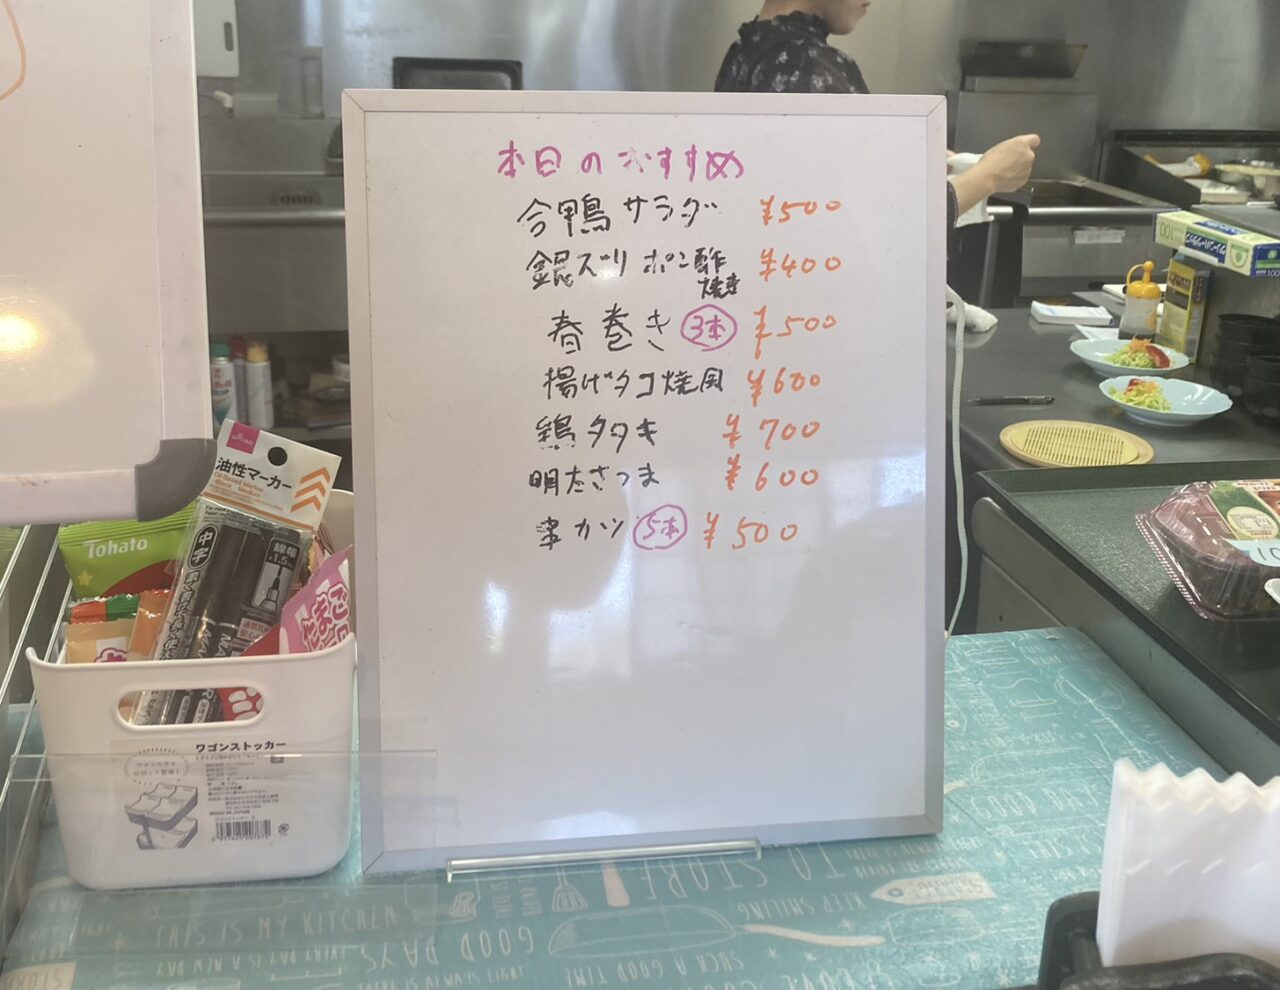 本日のおすすめ
合鴨サラダ ¥500
銀ズリポン酢焼き ¥400
春巻き 3本 ¥500
揚げタコ焼風 ¥600
鶏タタキ ¥700
明太さつま ¥600
串カツ 5本 ¥500
油性マーカー
中字
線幅
Tohato
たまご
ワゴンストッカー
THIS IS MY KITCHEN
GOOD DAYS
TO STORE
KEEP SMILING
SUCH A GOOD TIME